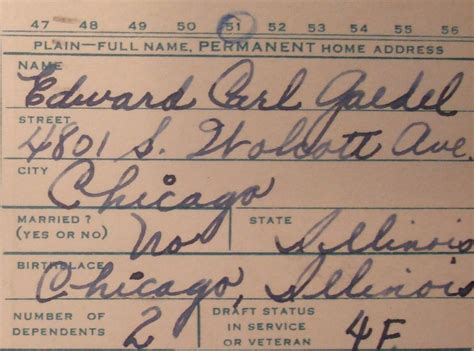 47 48 49 50 51 52 53 54 55 56
PLAIN—FULL NAME, PERMANENT HOME ADDRESS
NAME
Edward Carl Gaedel
STREET
4801 S. Wolcott Ave.
CITY
Chicago
MARRIED? (YES OR NO) No STATE Illinois
BIRTHPLACE
Chicago, Illinois
NUMBER OF DEPENDENTS 2 DRAFT STATUS IN SERVICE OR VETERAN 4F